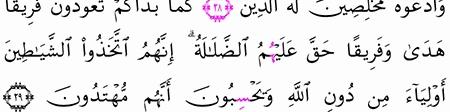 وَٱدْعُوهُ مُخْلِصِينَ لَهُ ٱلدِّينَ ٢٨ كَمَا بَدَأَكُمْ تَعُودُونَ فَرِيقًا
هَدَىٰ وَفَرِيقًا حَقَّ عَلَيْهِمُ ٱلضَّلَـٰلَةُ ۗ إِنَّهُمُ ٱتَّخَذُوا۟ ٱلشَّيَـٰطِينَ
أَوْلِيَآءَ مِن دُونِ ٱللَّهِ وَيَحْسِبُونَ أَنَّهُم مُّهْتَدُونَ ٢٩